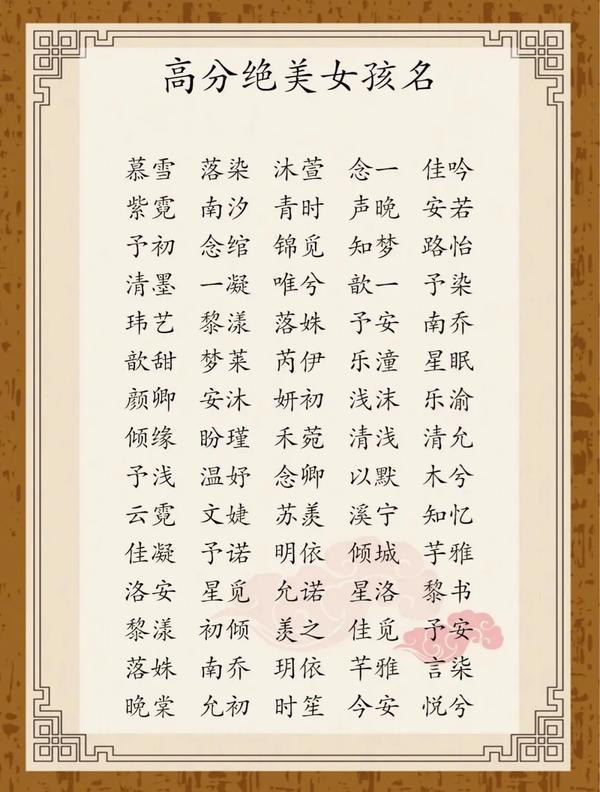 高分绝美女孩名
慕雪 落染 沐萱 念一 佳吟
紫霓 南汐 青时 声晚 安若
予初 念绾 锦觅 知梦 路怡
清墨 一凝 唯兮 歆一 予染
玮艺 黎漾 落姝 予安 南乔
歆甜 梦莱 芮伊 乐潼 星眠
颜卿 安沐 妍初 浅沫 乐渝
倾缘 盼瑾 禾菀 清浅 清允
予浅 温妤 念卿 以默 木兮
云霓 文婕 苏羡 溪宁 知忆
佳凝 予诺 明依 倾城 芋雅
洛安 星觅 允诺 星洛 黎书
黎漾 初倾 羡之 佳觅 予安
落姝 南乔 玥依 芊雅 言柒
晚棠 允初 时笙 今安 悦兮